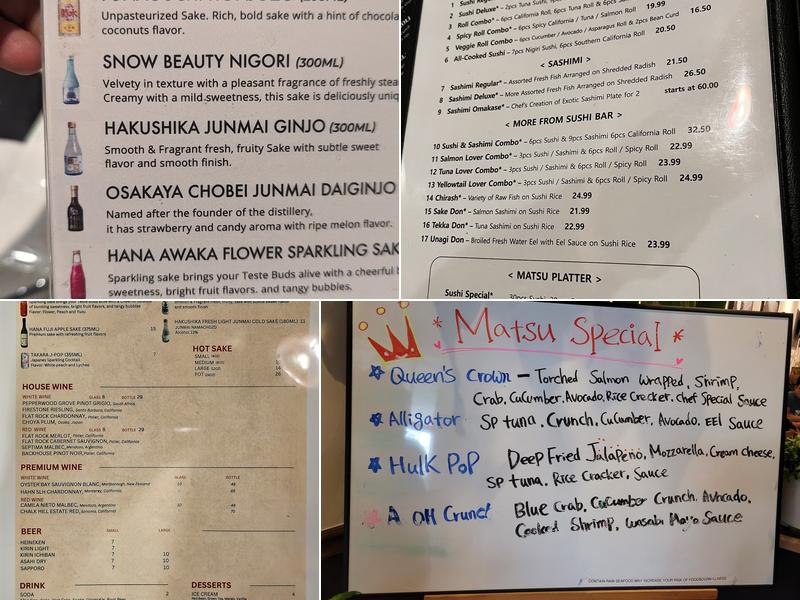 Unpasteurized Sake. Rich, bold sake with a hint of
coconuts flavor.
SNOW BEAUTY NIGORI (300ML)
Velvety in texture with a pleasant fragrance of freshly
Creamy with a mild sweetness, this sake is deliciously
HAKUSHIKA JUNMAI GINJO (300ML)
Smooth & Fragrant fresh, fruity Sake with subtle sweet
flavor and smooth finish.
OSAKAYA CHOBEI JUNMAI DAIGINJO
Named after the founder of the distillery,
it has strawberry and candy aroma with ripe melon flavor.
HANA AWAKA FLOWER SPARKLING
Sparkling sake brings your Teste Buds alive with a cheerful
sweetness, bright fruit flavors. and tangy bubbles.
3 Roll Combo* – 6pcs California Roll, 6pcs Tuna Roll &
4 Spicy Roll Combo – 6pcs Spicy California / Tuna / Salmon Roll 19.99
5 Veggie Roll Combo – 6pcs Cucumber / Avocado / Asparagus Roll & 2pcs Bean Curd 16.50
6 All-Cooked Sushi – 7pcs Nigiri Sushi, 6pcs Southern California Roll 20.50
< SASHIMI >
7 Sashimi Regular* – Assorted Fresh Fish Arranged on Shredded Radish 21.50
8 Sashimi Deluxe* – More Assorted Fresh Fish Arranged on Shredded Radish 26.50
9 Sashimi Omakase* – Chef's Creation of Exotic Sashimi Plate for 2 starts at 60.00
< MORE FROM SUSHI BAR >
10 Sushi & Sashimi Combo* – 6pcs Sushi & 9pcs Sashimi 6pcs California Roll 32.50
11 Salmon Lover Combo* – 3pcs Sushi / Sashimi & 6pcs Roll / Spicy Roll 22.99
12 Tuna Lover Combo* – 3pcs Sushi / Sashimi & 6pcs Roll / Spicy Roll 23.99
13 Yellowtail Lover Combo* – 3pcs Sushi / Sashimi & 6pcs Roll / Spicy Roll 24.99
14 Chirash* – Variety of Raw Fish on Sushi Rice 24.99
15 Sake Don* – Salmon Sashimi on Sushi Rice 21.99
16 Tekka Don* – Tuna Sashimi on Sushi Rice 22.99
17 Unagi Don – Broiled Fresh Water Eel with Eel Sauce on Sushi Rice 23.99
< MATSU PLATTER >
Sushi Special*
of bursting sweetness, bright fruit flavors, and tangy bubbles
Flavor: Flower, Peach and Yuzu
HANA FUJI APPLE SAKE (375ML) 15
Premium sake with refreshing fruit flavors
TAKARA J-POP (355ML) 7
Japanes Sparkling Cocktail.
Flavor: White peach and Lychee
and smooth finish
HAKUSHIKA FRESH LIGHT JUNMAI COLD SAKE (180ML) 11
JUNMAI NAMACHOZO
Alcohol:13%
HOT SAKE
SMALL
MEDIUM
LARGE
POT
HOUSE WINE
WHITE WINE GLASS 8 BOTTLE 29
PEPPERWOOD GROVE PINOT GRIGIO, South Africa
FIRESTONE RIESLING, Santa Barbara, California
FLAT ROCK CHARDONNAY, Parlier, California
CHOYA PLUM, Osaka, Japan
RED WINE GLASS 8 BOTTLE 29
FLAT ROCK MERLOT, Parlier, California
FLAT ROCK CABERNET SAUVIGNON, Parlier, California
SEPTIMA MALBEC, Mendoza, Argentina
BACKHOUSE PINOT NOIR, Parlier, California
PREMIUM WINE
WHITE WINE GLASS BOTTLE
OYSTER BAY SAUVIGNON BLANC, Marlborough, New Zealand
HAHN SLH CHARDONNAY, Monterey, California
RED WINE
CAMILA NIETO MALBEC, Mendoza, Argentina
CHALK HILL ESTATE RED, Sonoma, California
BEER SMALL LARGE
HEINEKEN 7
KIRIN LIGHT 7
KIRIN ICHIBAN 7 10
ASAHI DRY 7 10
SAPPORO 7 10
DRINK
SODA 2
DESSERTS
ICE CREAM 4
* Matsu Special *
Queen's Crown – Torched Salmon wrapped, Shrimp,
Crab, Cucumber, Avocado, Rice Cracker, chef Special Sauce
Alligator SP tuna, Crunch, Cucumber, Avocado, EEl Sauce
Hulk Pop Deep Fried Jalapeño, Mozzarella, Cream cheese,
SP tuna, Rice Cracker, Sauce
OH Crunch Blue Crab, Cucumber Crunch, Avocado,
Cooked Shrimp, Wasabi Mayo Sauce